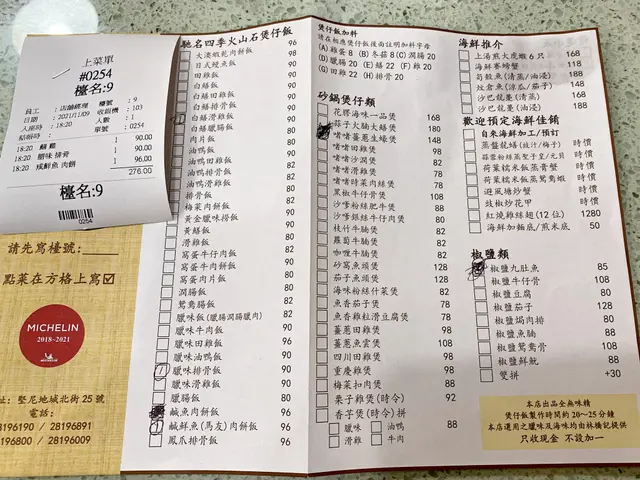 上菜單
#0254
檯名:9
員工: 店舖經理 檯號: 9
日期: 2021/11/09 收銀機: 103
入座時: 18:20 人數: 1
結帳時: 單號: 0254
18:20 1 90.00
18:20 腊味 排骨 1 90.00
18:20 咸鮮魚 肉餅 1 96.00
276.00
檯名:9
0254
請先寫檯號:
點菜在方格上寫☑
MICHELIN
2018-2021
MICHELIN
址: 堅尼地城北街 25 號
電話:
28196190 / 28196891
28196800 / 28196009
馳名四季火山石煲仔飯
大漠蝦乾肉餅飯 98
日式鰻魚飯 98
田雞飯
白鱔飯
白鱔排骨飯
白鱔滑雞飯
白鱔臘腸飯
肉片飯
油鴨飯
油鴨田雞飯
油鴨排骨飯
油鴨滑雞飯
排骨飯
梅菜肉餅飯
黃金臘味撈飯
黃鱔飯
滑雞飯
窩蛋牛仔肉飯
窩蛋牛肉餅飯
窩蛋肉片飯
潤腸飯
鴛鴦腸飯 82
臘味飯(臘腸潤腸臘肉) 82
臘味牛肉飯 90
臘味田雞飯 96
臘味油鴨飯 90
臘味排骨飯 90
臘味滑雞飯 90
臘腸飯 82
鹹魚肉餅飯 82
鹹鮮魚(馬友)肉餅飯 96
鳳爪排骨飯 96
煲仔飯加料
請在相應煲仔飯後面註明加料字母
(A) 雞蛋 8 (B) 冬菇 8 (C) 潤腸 20
(D) 臘腸 20 (E) 鱔 22 (F) 雞 20
(G) 田雞 22 (H) 排骨 20
砂鍋煲仔類
花膠海味一品煲 168
蒜子火腩大鱔煲 180
啫啫薑蔥生蠔煲 148
啫啫田雞煲
啫啫滑雞煲
啫啫時菜肉絲煲
黑椒牛仔骨煲
沙嗲粉絲肥牛煲
沙嗲銀絲牛仔肉煲
枝竹牛腩煲
蘿蔔牛腩煲
咖喱牛腩煲
砂窩魚頭煲 128
茄子魚頭煲 128
海味粉絲什菜煲 82
魚香茄子煲 82
魚香雞粒滑豆腐煲 78
薑蔥田雞煲 88
薑蔥魚雲煲 108
四川田雞煲 88
重慶雞煲 88
梅菜扣肉煲 88
栗子雞煲(時令) 92
香芋煲(時令)拼
臘味 油鴨 88
滑雞 牛肉
海鮮推介
上湯煎大虎蝦 6 只 188
海鮮賽螃蟹 168
筍殼魚(清蒸/油浸) 188
紋倉魚(涼瓜/茄子) 148
沙巴龍躉(清蒸) 168
沙巴龍躉(油浸) 188
歡迎預定海鮮佳餚
自來海鮮加工/預訂
蒸盤龍鱔(豉汁/梅子) 時價
蒜蓉粉絲蒸聖子皇/元貝 時價
荷葉糯米飯蒸膏蟹 時價
荷葉糯米飯蒸鴛鴦蝦 時價
避風塘炒蟹 時價
豉椒炒花甲 時價
紅燒雞絲翅(12 位) 1280
海鮮加麵底/煎米底 50
椒鹽類
椒鹽九肚魚 85
椒鹽牛仔骨 108
椒鹽豆腐 80
椒鹽茄子 128
椒鹽焗肉排 80
椒鹽魚腩 88
椒鹽鴛鴦骨 108
椒鹽鮮魷 88
雙拼 +30
本店出品全無味精
煲仔飯製作時間約 20～25 分鐘
本店選用之臘味及海味均由林橋記提供
只收現金 不設加一